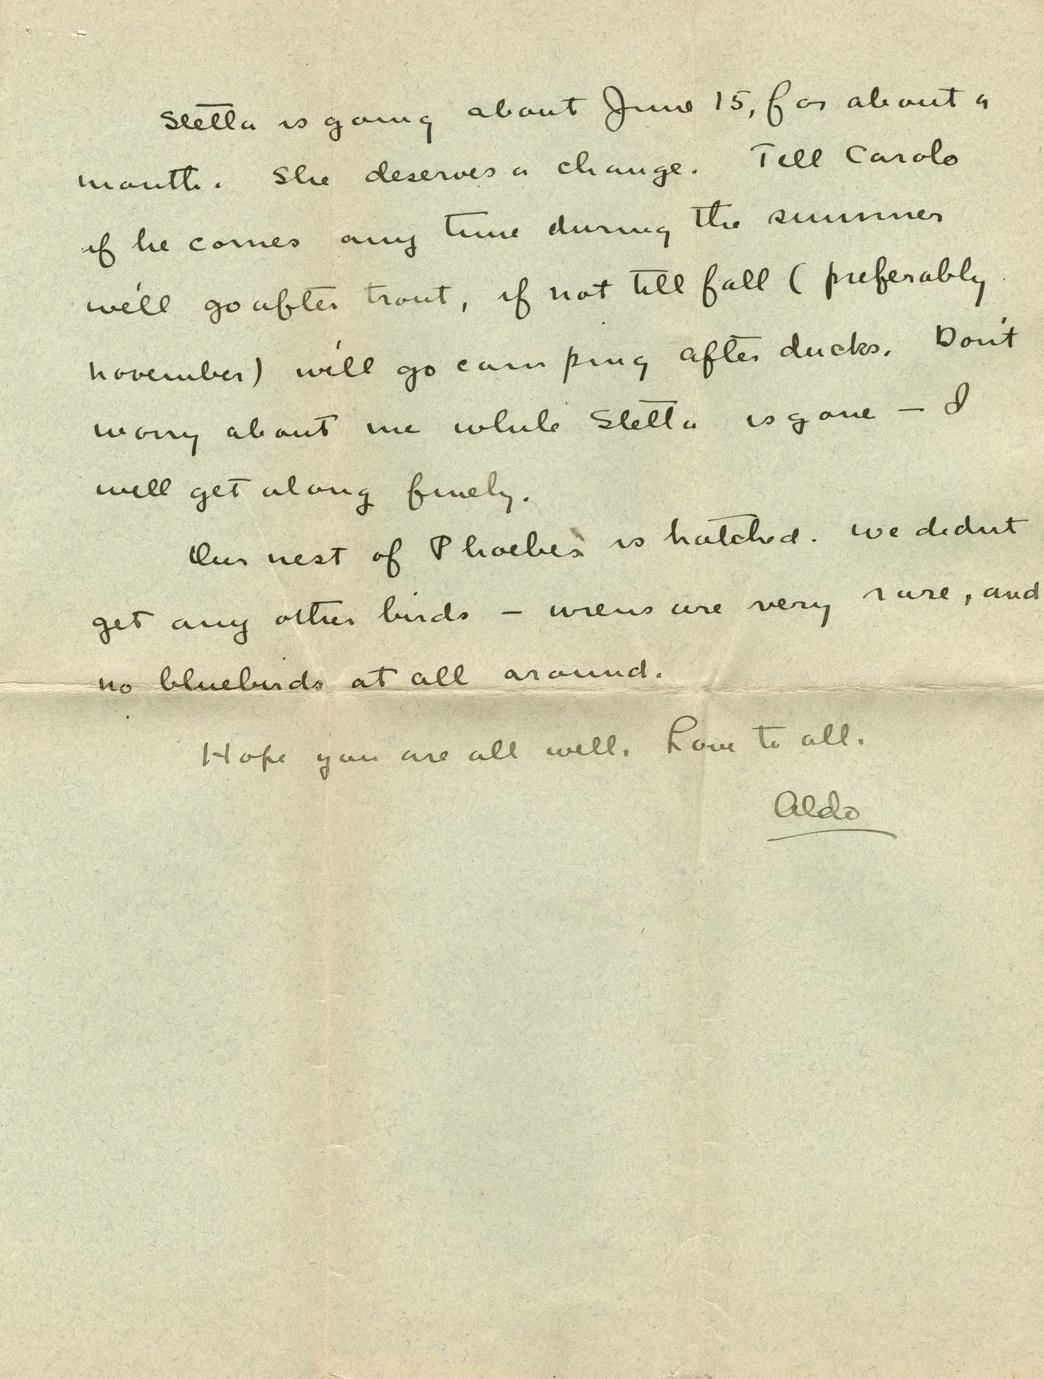 Stella is going about June 15, for about a
month. She deserves a change. Tell Carolo
if he comes any time during the summer
we'll go after trout, if not till fall ( preferably
november) we'll go camping after ducks. Don't
worry about me while Stella is gone — I
will get along finely.
Our nest of Phoebes is hatched. we didnt
get any other birds — wrens are very rare, and
no bluebirds at all around.
Hope you are all well. Love to all.
Aldo